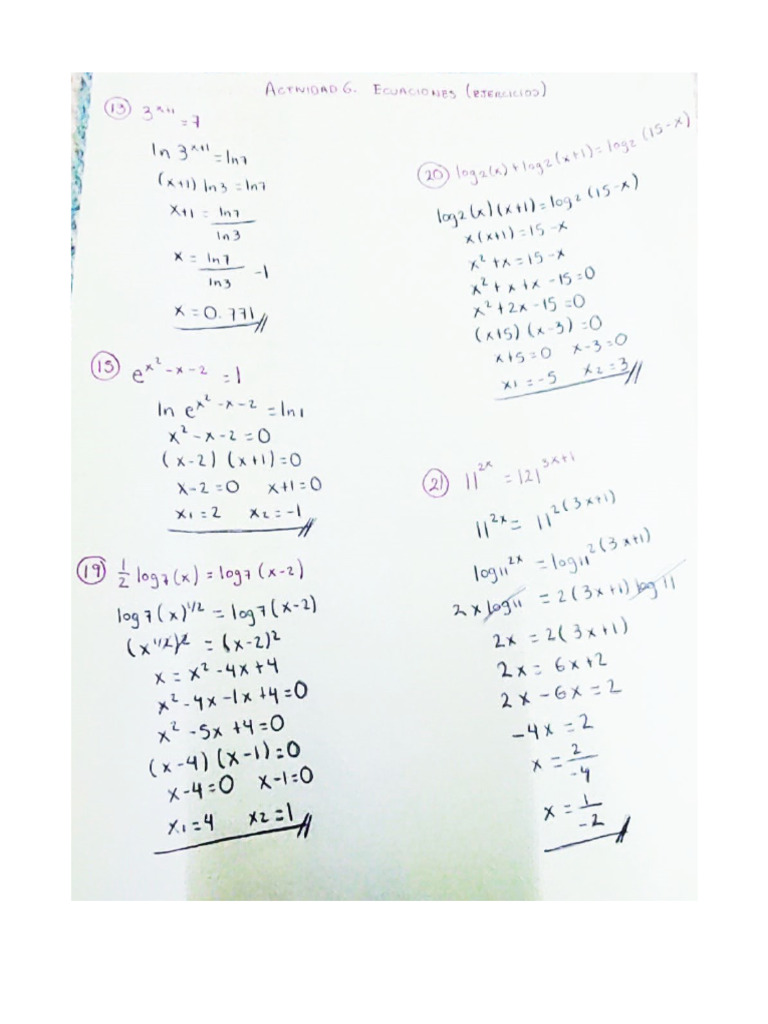 ACTIVIDAD 6. ECUACIONES (EJERCICIOS)
13 3^x+1 = 7
ln 3^x+1 = ln7
(x+1) ln 3 = ln7
x+1 = ln7/ln3
x = ln7/ln3 -1
x = 0.771
15 e^x²-x-2 = 1
ln e^x²-x-2 = ln1
x²-x-2=0
(x-2) (x+1)=0
x-2=0 x+1=0
x1=2 x2=-1
19 1/2 log7(x) = log7(x-2)
log7(x)^1/2 = log7(x-2)
(x^1/2)² = (x-2)²
x = x²-4x+4
x²-4x-1x+4=0
x²-5x+4=0
(x-4)(x-1)=0
x-4=0 x-1=0
x1=4 x2=1
20 log2(x)+log2(x+1)=log2(15-x)
log2(x)(x+1)=log2(15-x)
x(x+1)=15-x
x²+x=15-x
x²+x+x-15=0
x²+2x-15=0
(x+5)(x-3)=0
x+5=0 x-3=0
x1=-5 x2=3
21 11^2x = 121^3x+1
11^2x = 11^2(3x+1)
log11^2x = log11^2(3x+1)
2x log11 = 2(3x+1) log11
2x=2(3x+1)
2x=6x+2
2x-6x=2
-4x=2
x=2/-4
x=1/-2